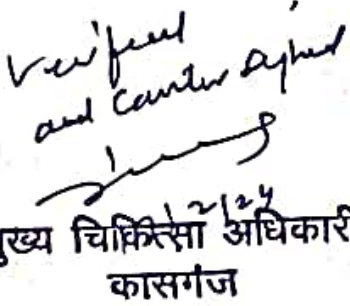 Verified
and Counter Signed
मुख्य चिकित्सा अधिकारी
कासगंज